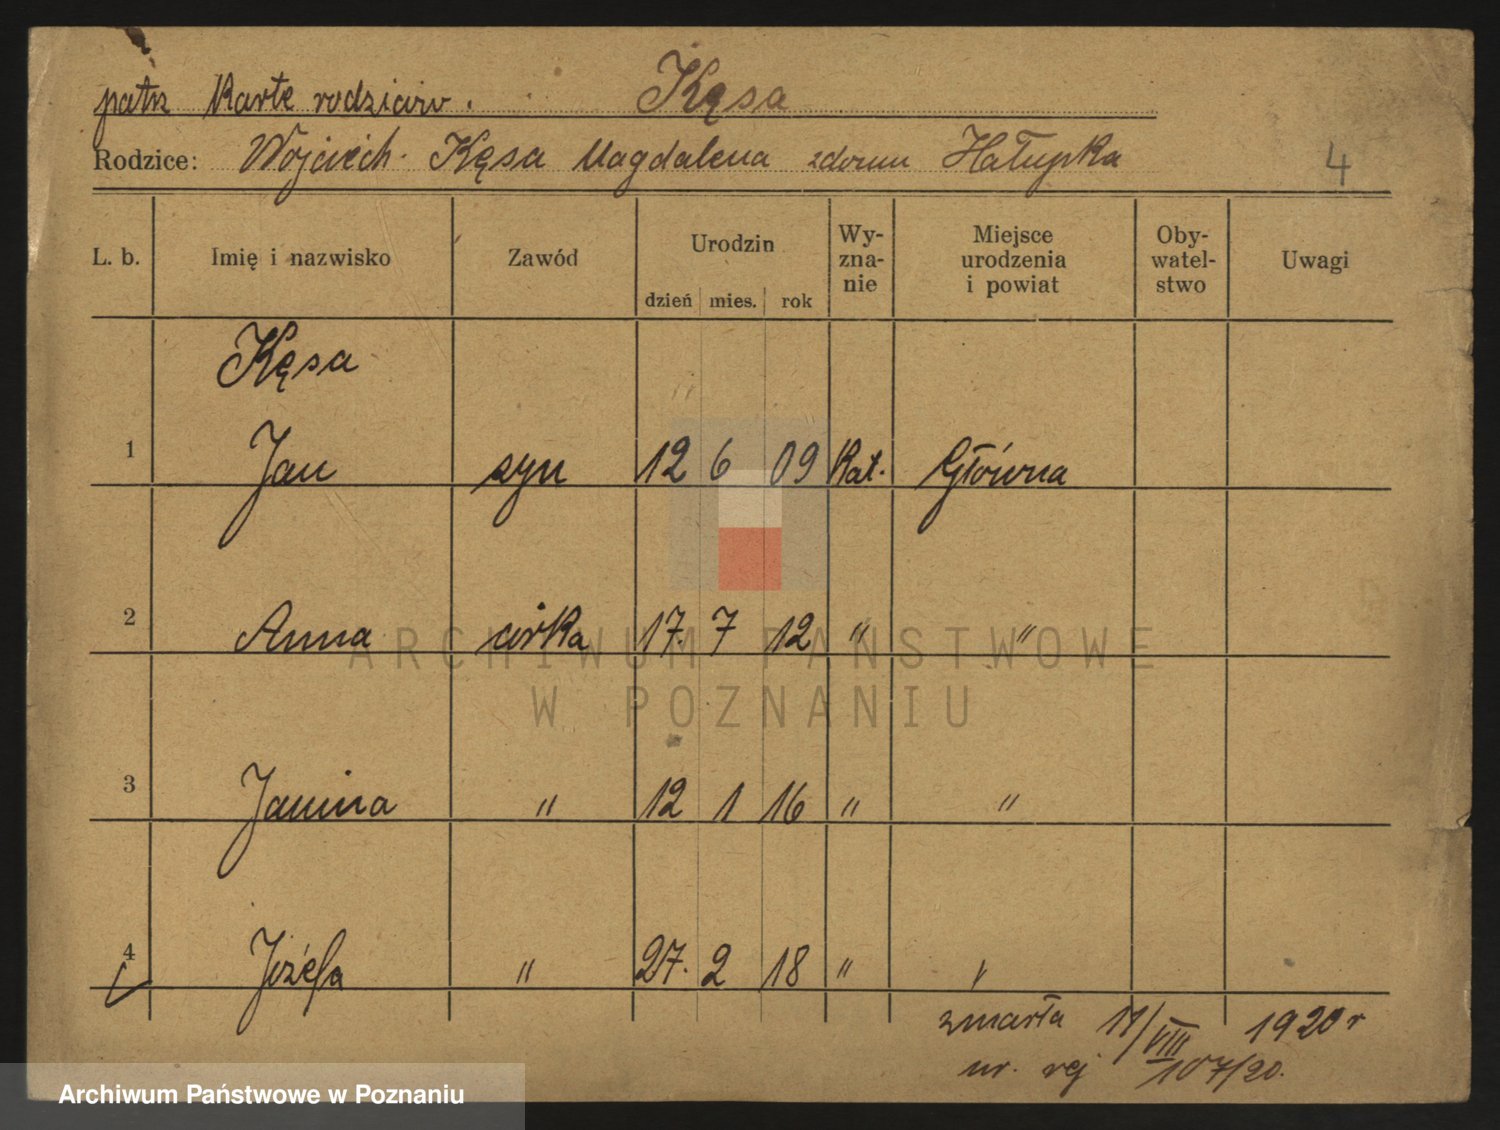 patrz Kartę rodziców. Kęsa
Rodzice: Wojciech Kęsa Magdalena zdomu Hałupka
4
L. b. Imię i nazwisko Zawód Urodzin Wy-zna-nie Miejsce urodzenia i powiat Oby-watel-stwo Uwagi
dzień mies. rok
Kęsa
1 Jan syn 12 6 09 Kat. Główna
2 Anna córka 17. 7 12 " "
3 Janina " 12 1 16 " "
4 Józefa " 27. 2 18 " "
zmarła 11/VIII 1920 r
nr. rej 107/20.
ARCHIWUM PAŃSTWOWE
W POZNANIU
Archiwum Państwowe w Poznaniu